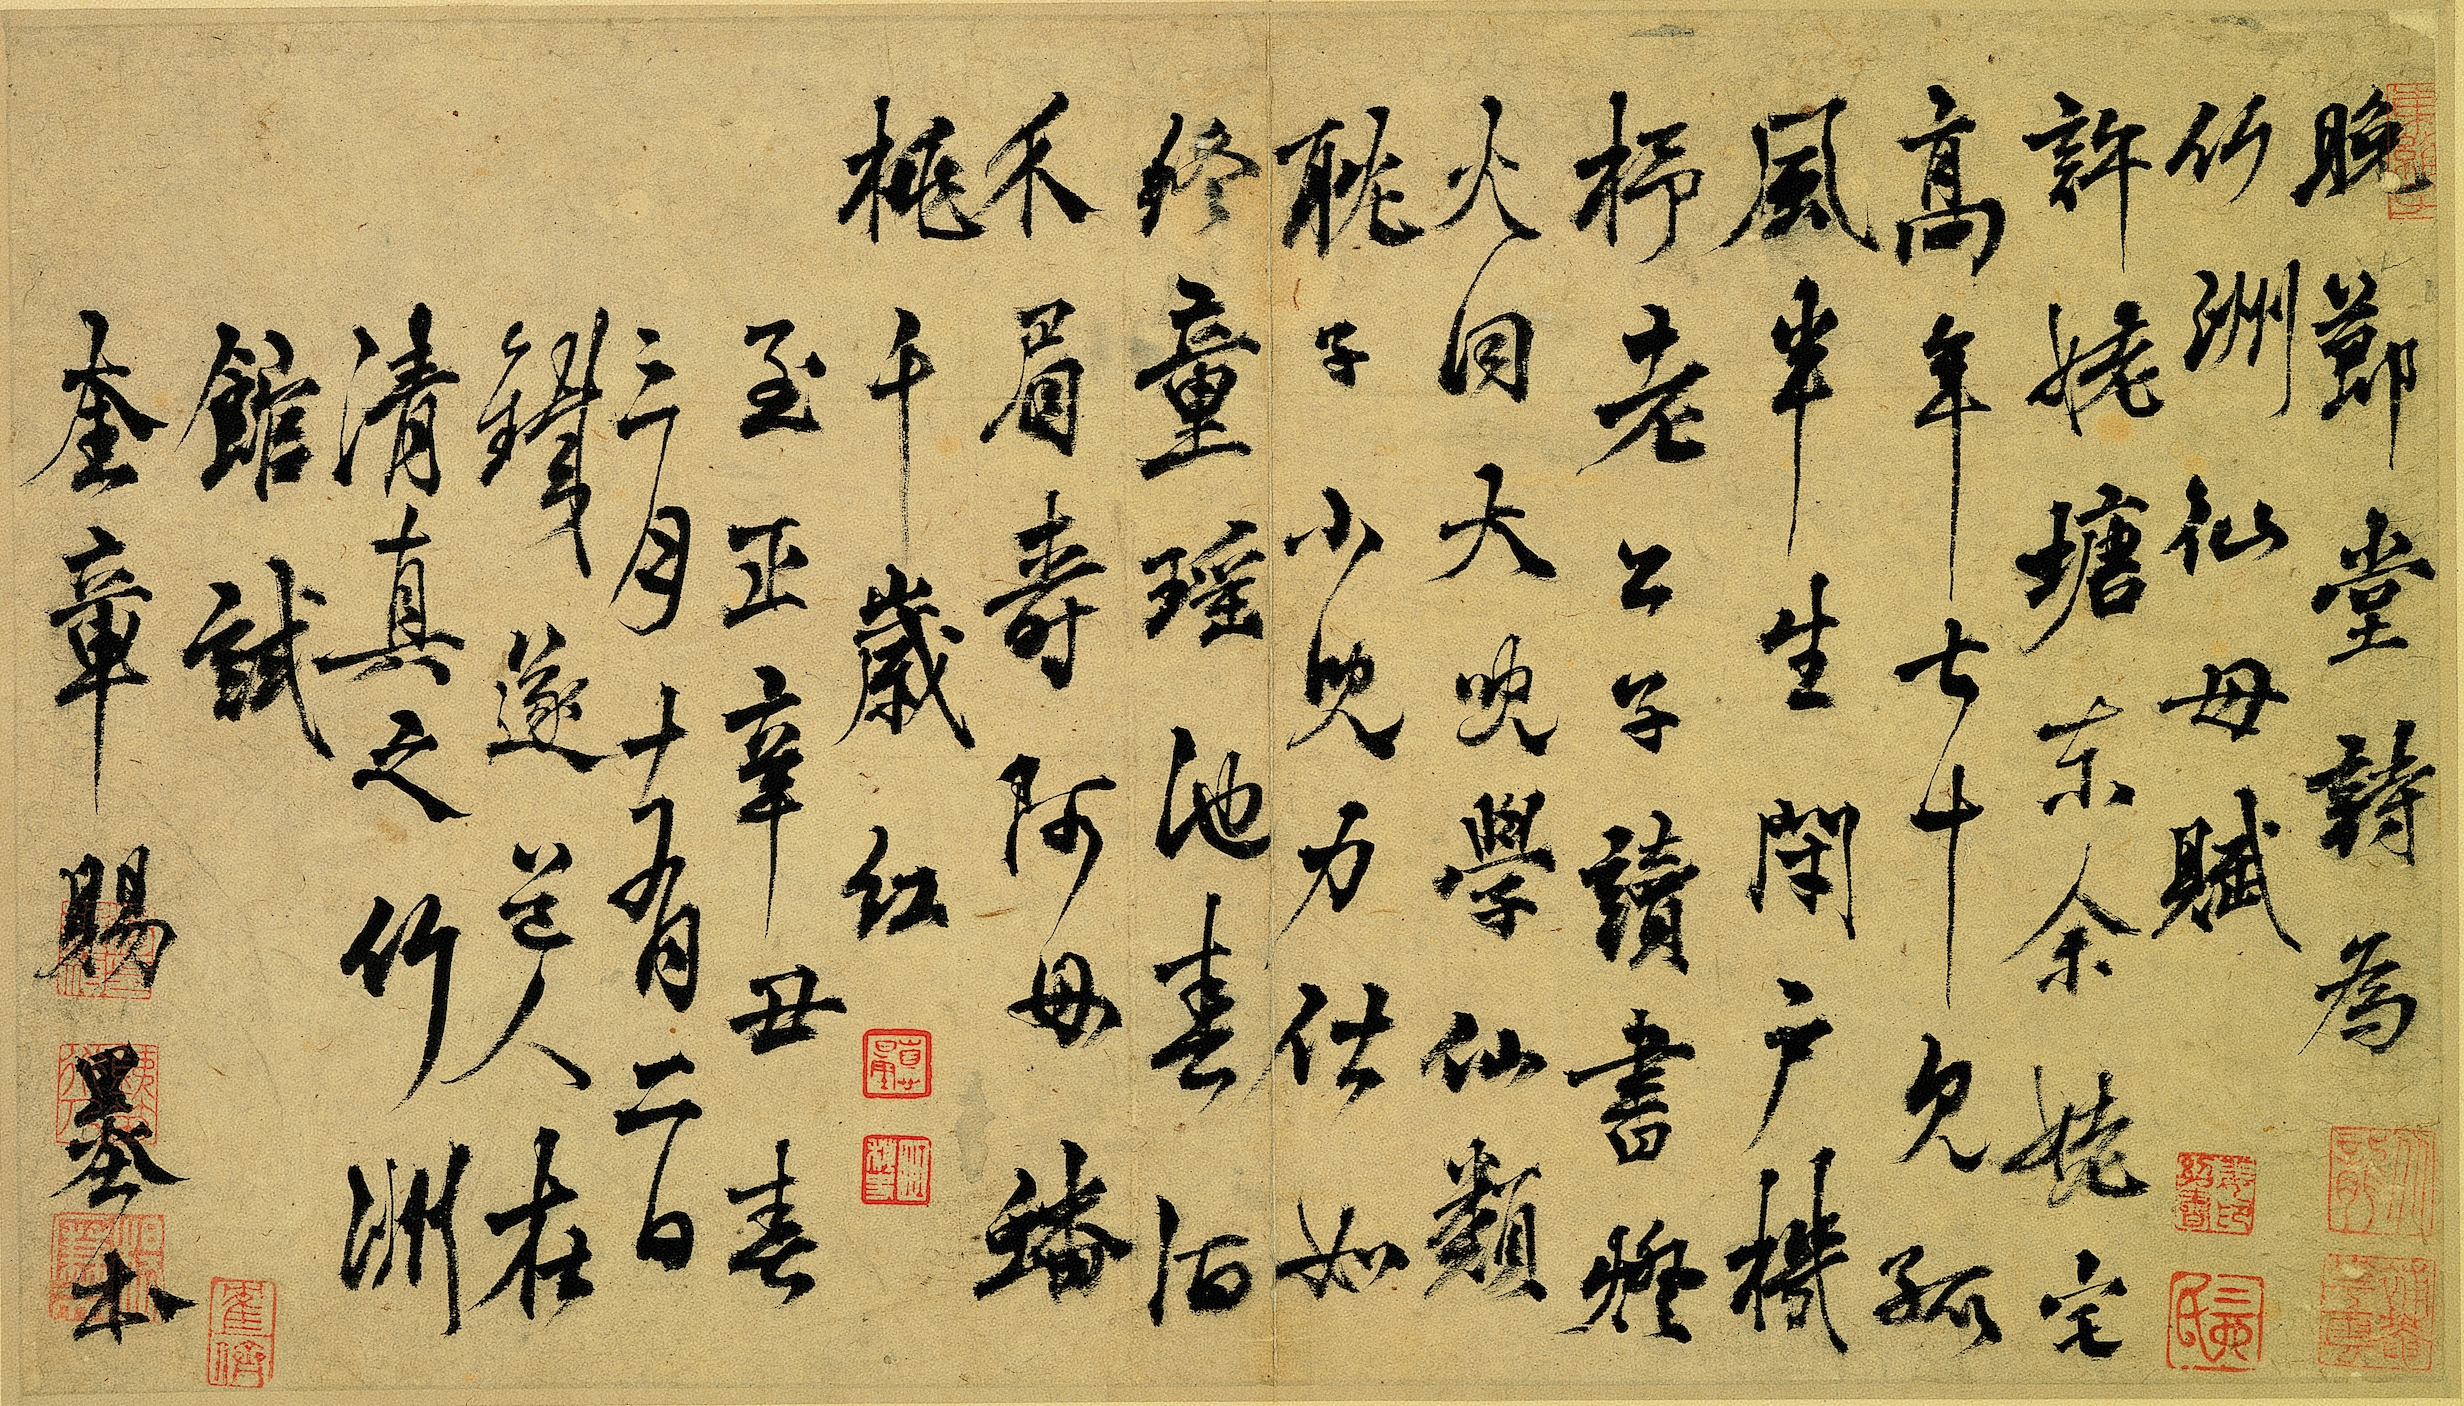 晚節堂詩為
竹洲仙母賦
許姥塘東余姥宅
高年七十見孤
風半生閉户機
杼老公子讀書燈
火同大兒學仙類
耽子小兒力仕如
終童瑤池春酒
介眉壽阿母蟠
桃千歲紅
至正辛丑春
三月十有二日
鐵篴道人在
清真之竹洲
館試
奎章賜墨本